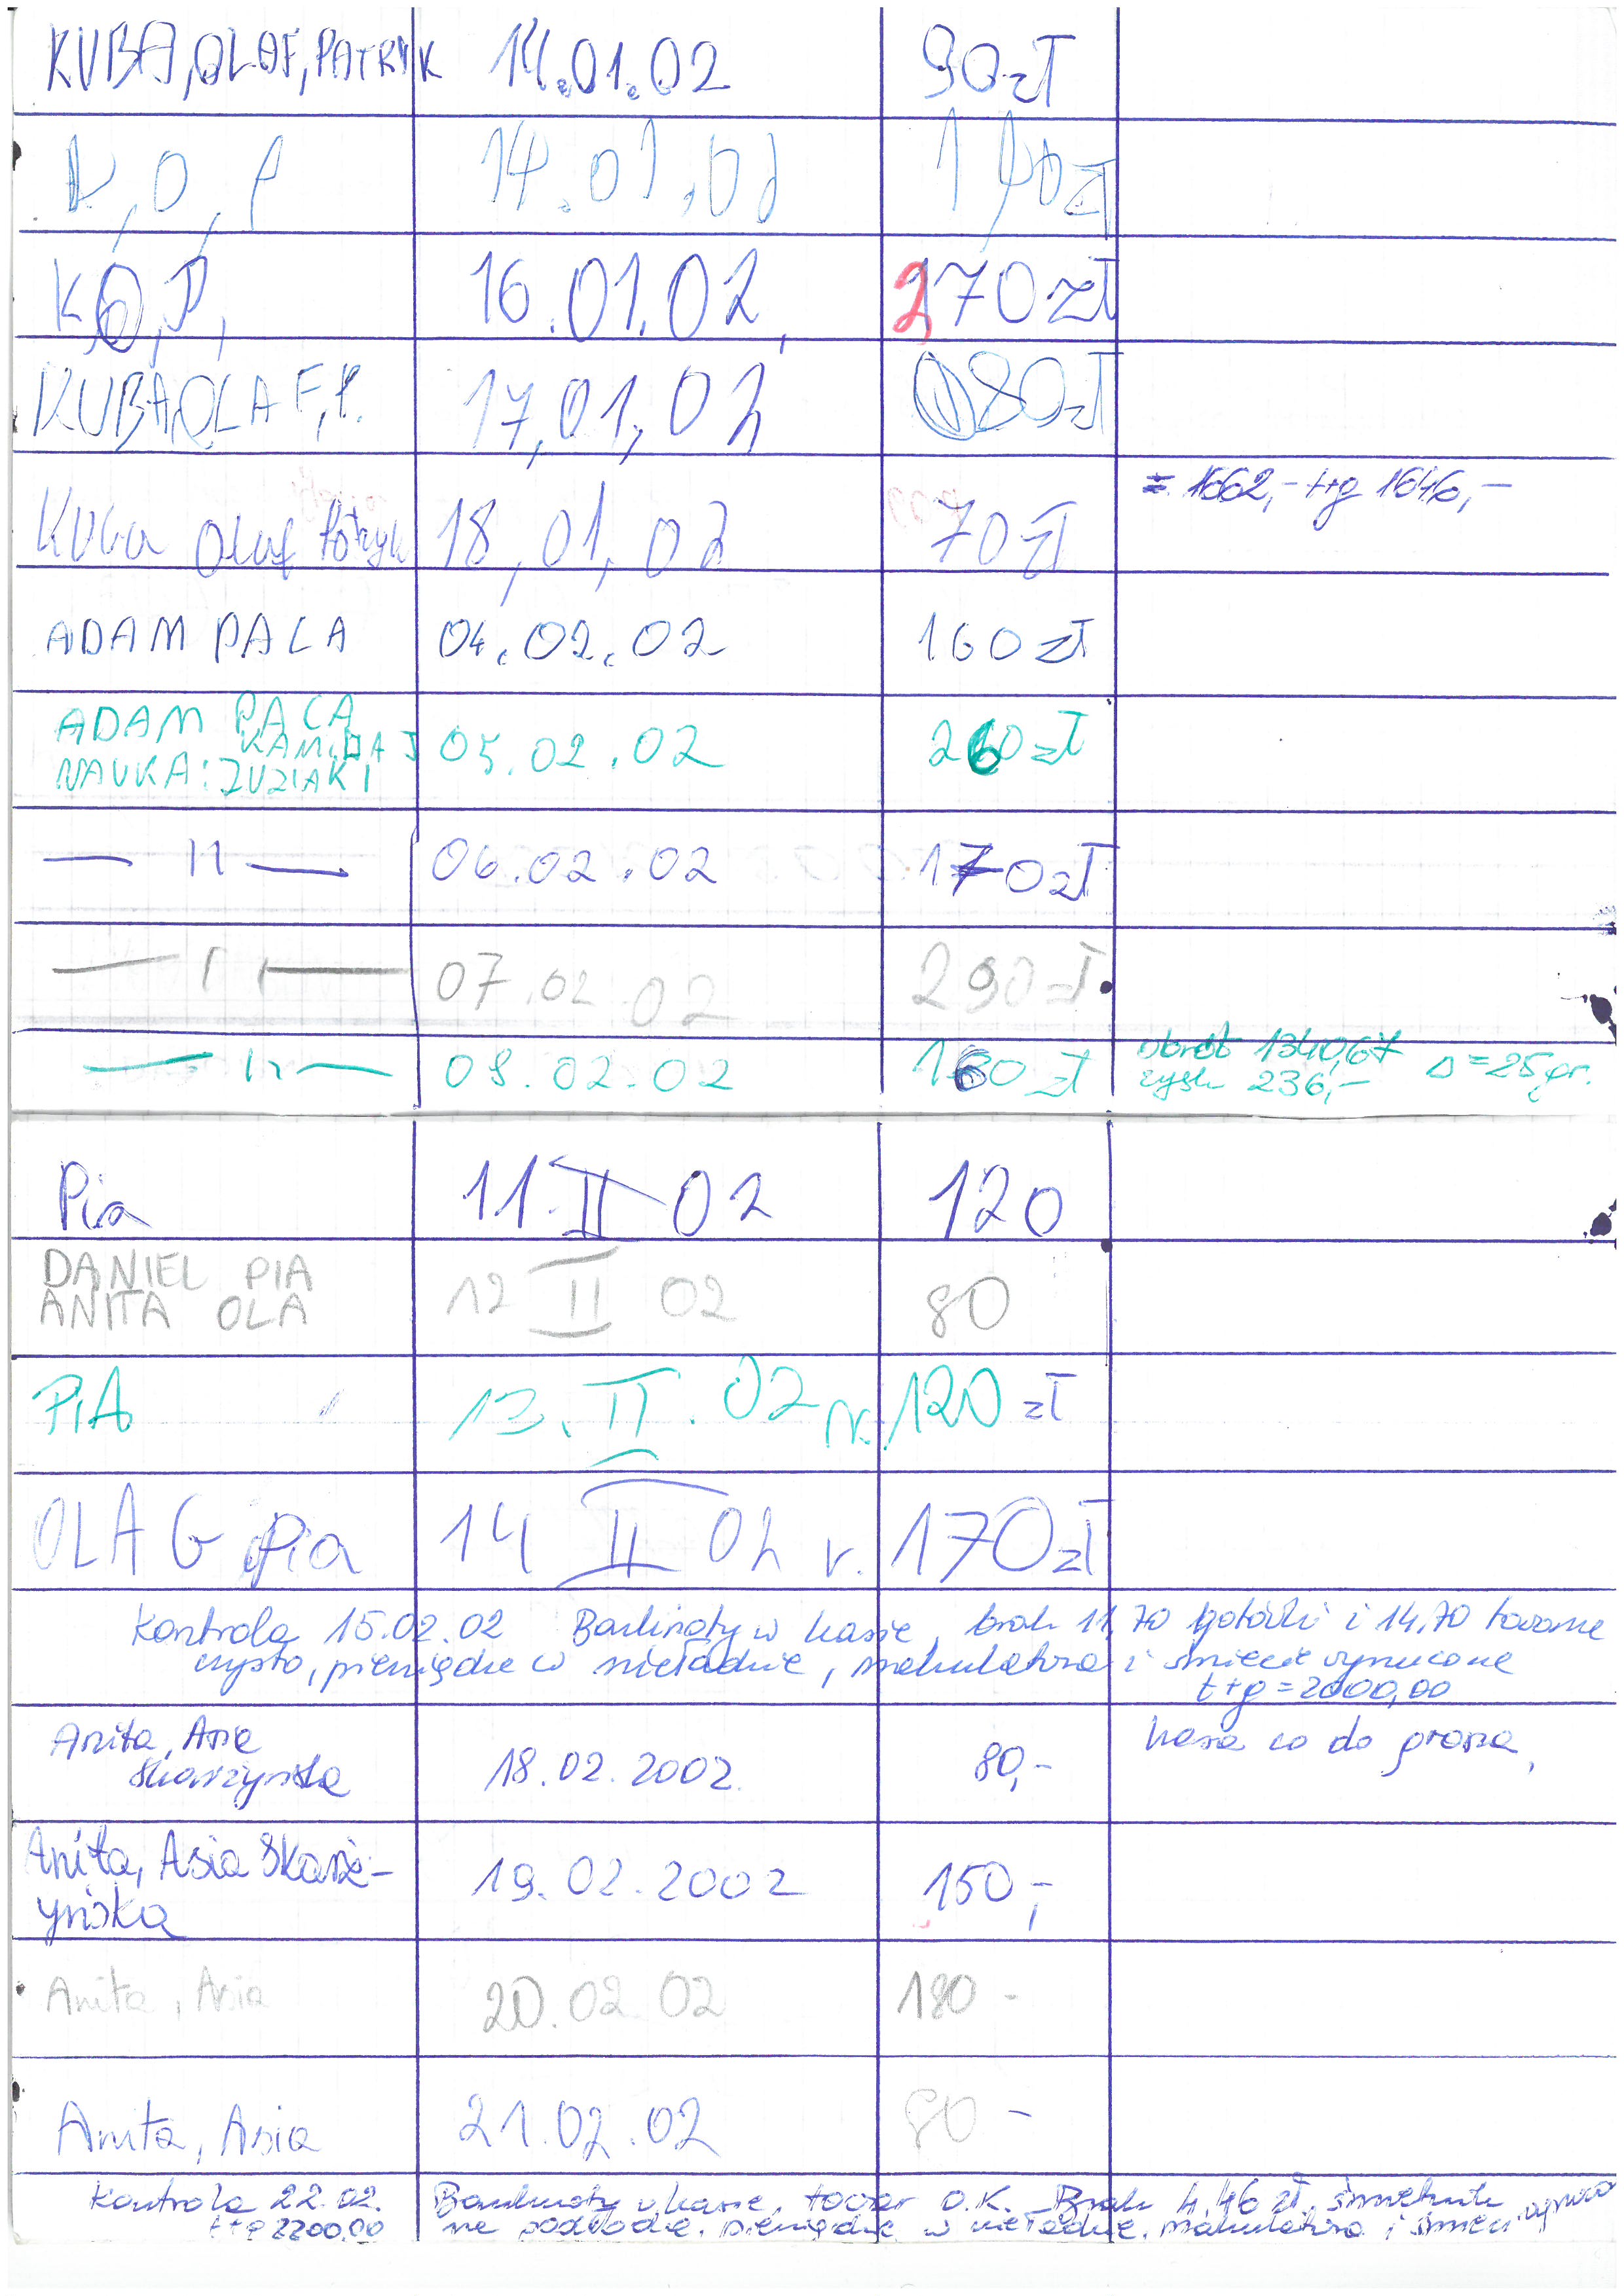 KUBA, OLAF, PATRYK 14.01.02 90zł
K, O, P 14.01.02 140zł
K, O, P, 16.01.02, 270zł
KUBA, OLAF, P. 17,01,02 80zł
= 1662,- t+g 1646,-
Kuba Olaf Patryk 18,01,02 70zł
ADAM PALA 04.02.02 160zł
ADAM PALA
NAUKA: ZUZIAKI 05.02.02 260zł
— 11 — 06.02.02 170zł
— 11 — 07.02.02 290zł
— 11 — 08.02.02 160zł obrót 1340,67 Δ=25gr.
zysk 236,-
Pia 11.II 02 120
DANIEL PIA
ANITA OLA 12 II 02 80
PiA 13. II. 02 r. 120 zł
OLA G Pia 14 II 02 r. 170zł
Kontrola 15.02.02 Banknoty w kasie, brak 11,70 gotówki i 14,70 towaru
czysto, pieniądze w nieładzie, makulatura i śmieci wyrzucone
t+g = 2000,00
Anita, Asia
Skarzyńska 18.02.2002. 80,- kasa co do grosza,
Anita, Asia Skarż-
yńska 19.02.2002 150,-
Anita, Asia 20.02 02 180 -
Anita, Asia 21.02.02 80 -
Kontrola 22.02. Banknoty w kasie, towar O.K. Brak 4,46 zł,
t+g 2200,00 na podłodze, pieniądze w nieładzie, makulatura i śmieci